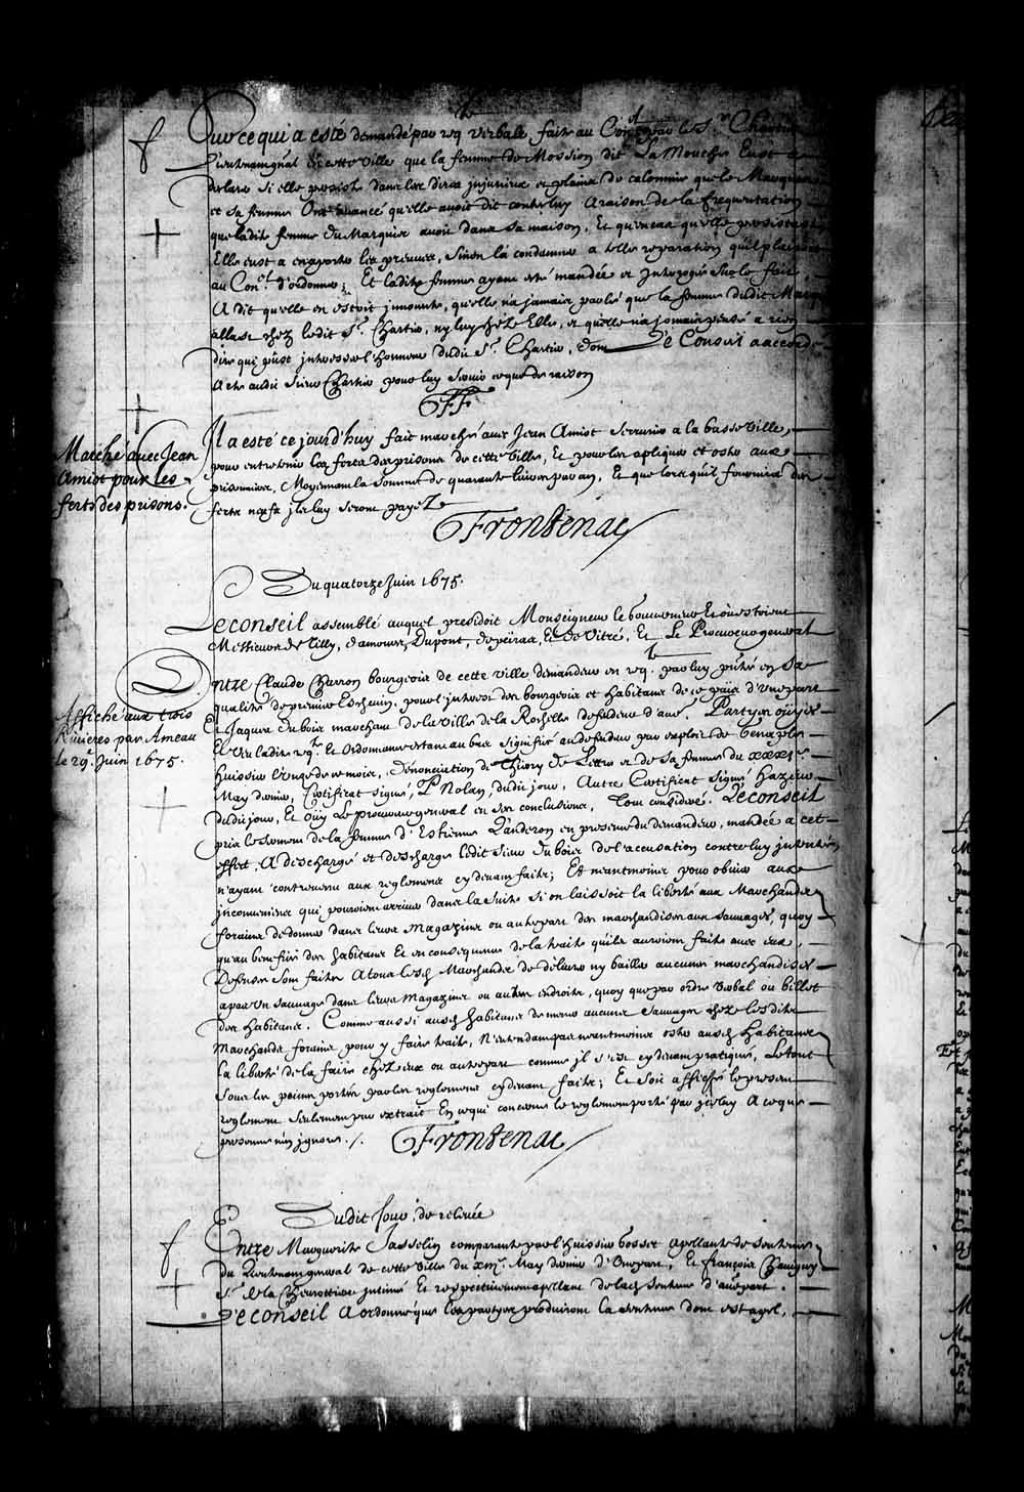 Sur ce qui a esté demandé par req.te verballe, faite au Con.el par le S.r Chartier
Lieutenant gnal de cette ville que la femme de Mossion dit La Mouche Eust a
declarer si elle persiste dans les dires injurieux et plains de calomnie que le Marquis
et sa femme Ont avancé qu'elle avoit dit contre luy a raison de la frequentation
que ladite femme du Marquis avoit dans sa maison, Et qu'en cas qu'elle persistast
Elle eust a en aporter les preuves, Sinon la condamner a telle reparation quil plairoit
au Con.el d'ordonner; Et ladite femme ayant esté mandée et Interogée sur le fait,
A dit quelle en estoit innocente, qu'elle n'a jamais parlé que la femme dudit Marquis
allast chez ledit S.r Chartier, ny luy chez Elle, et quelle n'a jamais pensé a rien
dire qui pust interesser l'honneur dudit S.r Chartier, dont Le Conseil a accordé
Acte audit Sieur Chartier pour luy servir ce que de raison
FF
Marché avec Jean
Amiot pour les
fers des prisons.
Il a esté ce jourd'huy fait marché avec Jean Amiot Serrurier a la basse ville,
pour entretenir les fers des prisons de cette ville, Et pour les apliquer et oster aux
prisonniers, Moyennant la Somme de quarante livres par an, Et que lors qu'il fournira des
fers neufs ils luy seront payéz
Frontenac
Du quatorze Juin 1675.
Le conseil assemblé auquel presidoit Monseigneur le gouverneur Et où estoient
Messieurs de Tilly, damours, Dupont, depeiras, Et de Vitré, Et Le Procureur general
Affiché aux trois
Rivieres par Ameau
le 29.e Juin 1675.
Entre Claude Charron bourgeois de cette ville demandeur en req.te par luy pntée en Sa
qualité de premier Eschevin, pour l'interest des bourgeois et habitans de ce païs d'une part
Et Jaques dubois marchand de la ville de la Rochelle defendeur d'autre. Partyes oüyes
Et Veu ladite req.te Et Ordonnance estant au bas signifié au defendeur par exploit de
huissier, denonciation de Thiery de Lettre et de sa femme du xxxi.e
May dernier, Certificat signé, P Nolan, dudit jour, Autre Certificat signé hazeur
dudit jour, Et oüy Le procureur general en ses conclusions, Tout consideré. Le conseil
pris le serment de la femme d'Estienne Landeron en presence du demandeur, mandée a cet
effect, A deschargé et descharge ledit Sieur dubois de l'accusation contre luy intentée
n'ayant contrevenu aux reglemens cy devant faits; Et neantmoins pour obvier aux
inconveniens qui pouroient arriver dans la suite si on laissoit la liberté aux Marchands
forains de donner dans leurs Magazins ou autrepart des marchandises aux sauvages, quoy
qu'au benefice des habitans Et en consequence de la traite qu'ils auroient faite avec eux,
Defenses sont faites a tous lesd. Marchands de delivrer ny bailler aucunes marchandises
aux sauvages dans leurs Magazins ou autres endroits, quoy que par ordre verbal ou billet
des habitans. Comme aussi ausd. habitans de mener aucuns sauvages chez lesdits
Marchands forains pour y faire traite, N'entendans pas neantmoins oster ausd. habitans
la liberté de la faire chez eux ou autrepart comme il s'est cy devant pratiqué, Le tout
sous les peines portées par les reglemens cy devant faits; Et soit affiché le present
reglement seulement par extrait En ce qui concerne le reglement porté par iceluy A ce que
personne n'en ignore./.
Frontenac
Du dit Jour de relevée
Entre Marguerite Gasselin comparante par l'huissier bosset apellante de sentence
du Lieutenant general de cette ville du xm.e May dernier d'Une part, Et françois Chavigny
S.r de la Chevrottiere intimé Et respectivement apellant de lad. Sentence d'autre part.
Le conseil A ordonné que les partyes produiront la sentence dont est apel,